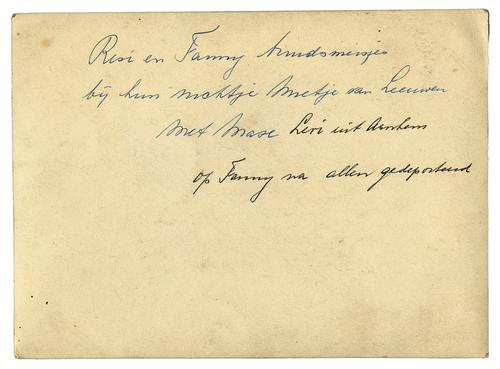 Resi en Fanny bruidsmeisjes
bij hun nichtje Metje van Leeuwen
met Levi uit Arnhem
op Fanny na allen gedeporteerd